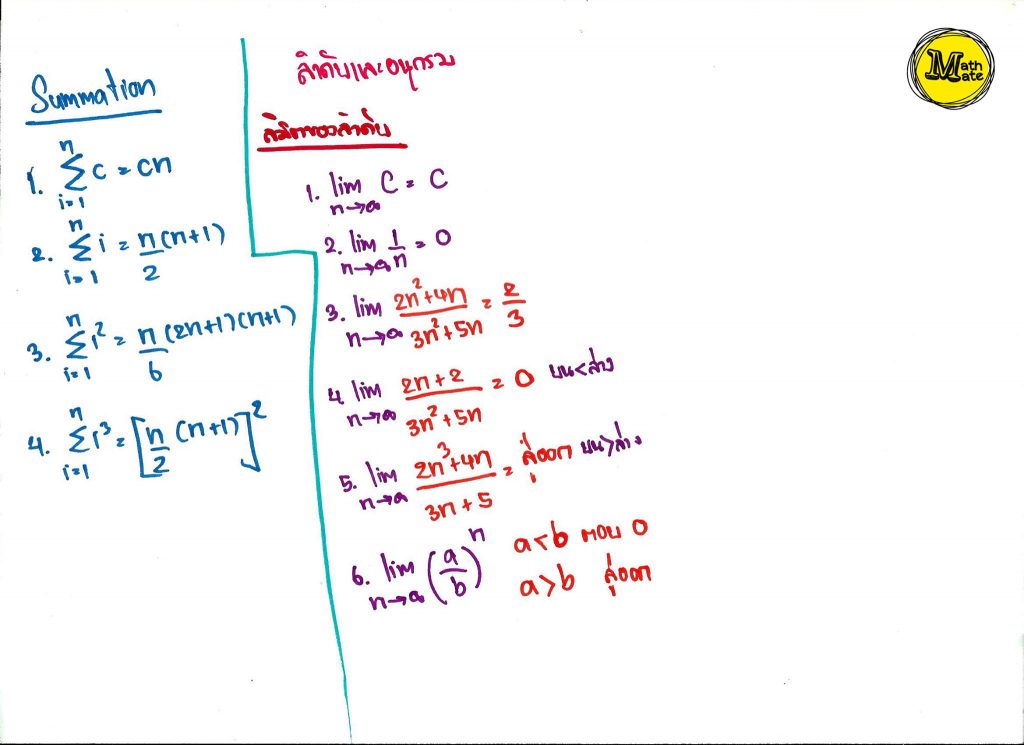 Summation
1. n Σ i=1 c = cn
2. n Σ i=1 i = n/2 (n+1)
3. n Σ i=1 i² = n/6 (2n+1)(n+1)
4. n Σ i=1 i³ = [n/2 (n+1)]²
ลำดับและอนุกรม
ลิมิตของลำดับ
1. lim n→∞ C = C
2. lim n→∞ 1/n = 0
3. lim n→∞ (2n²+4n)/(3n²+5n) = 2/3
4. lim n→∞ (2n+2)/(3n²+5n) = 0 บน<ล่าง
5. lim n→∞ (2n³+4n)/(3n+5) = ลู่ออก บน>ล่าง
6. lim n→∞ (a/b)ⁿ a<b ตอบ 0
a>b ลู่ออก
Math
Mate